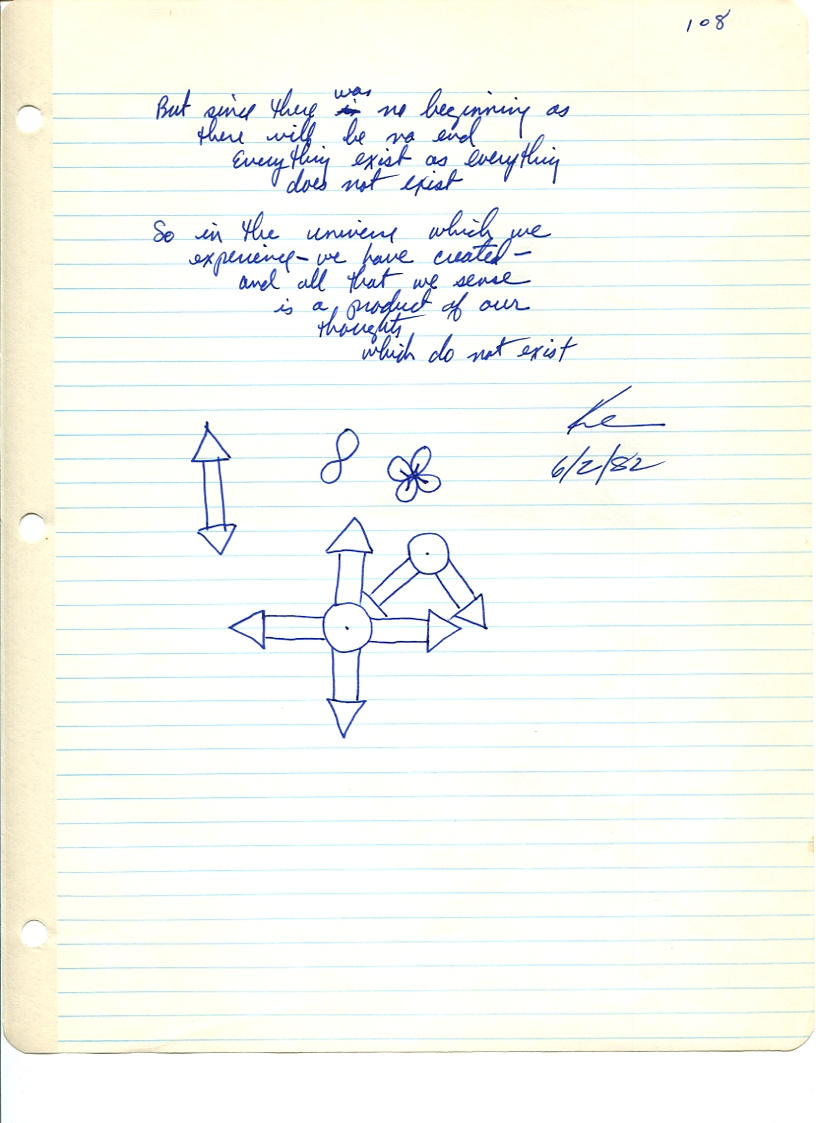 108
But since there was no beginning as
there will be no end
Everything exist as everything
does not exist
So in the universe which we
experience – we have created –
and all that we sense
is a product of our
thoughts
which do not exist
6/2/82